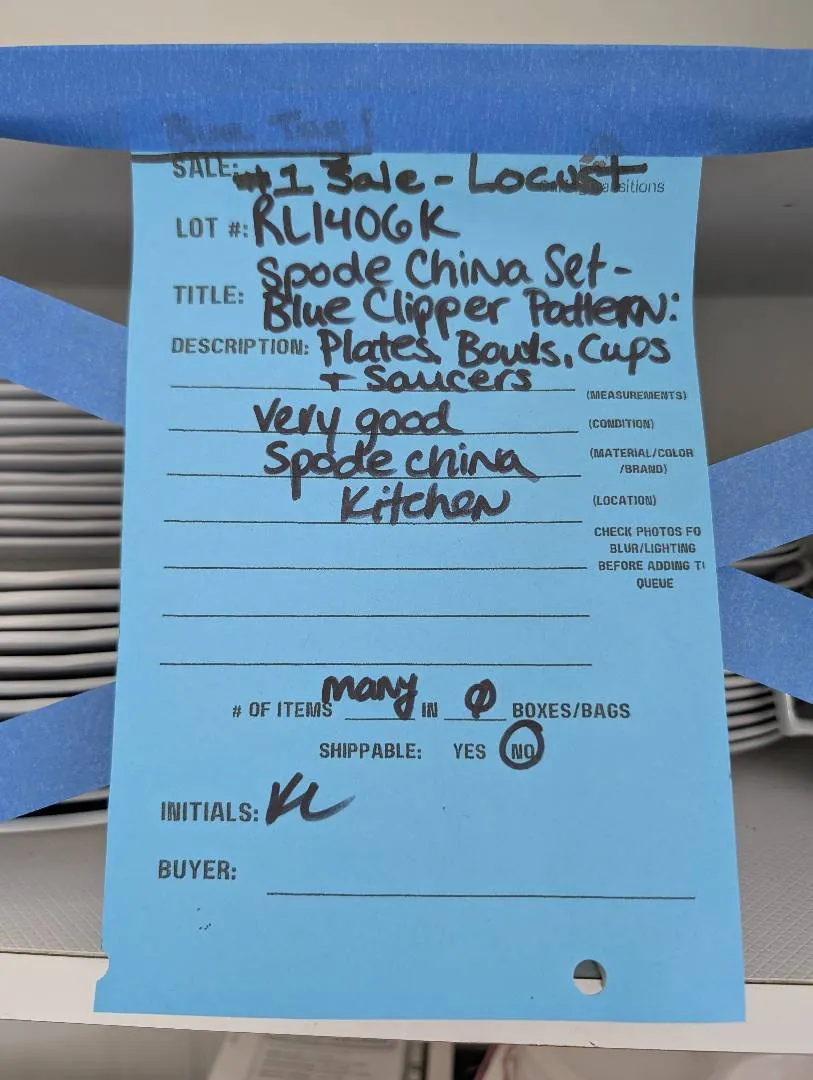 Blue Tag!
SALE: #1 Sale - Locust
sitions
LOT #: RL1406K
Spode China Set -
TITLE: Blue Clipper Pattern:
DESCRIPTION: Plates, Bowls, Cups
+ Saucers (MEASUREMENTS)
Very good (CONDITION)
Spode china (MATERIAL/COLOR
/BRAND)
Kitchen (LOCATION)
CHECK PHOTOS FO
BLUR/LIGHTING
BEFORE ADDING T
QUEUE
# OF ITEMS many IN 0 BOXES/BAGS
SHIPPABLE: YES NO
INITIALS: KL
BUYER: